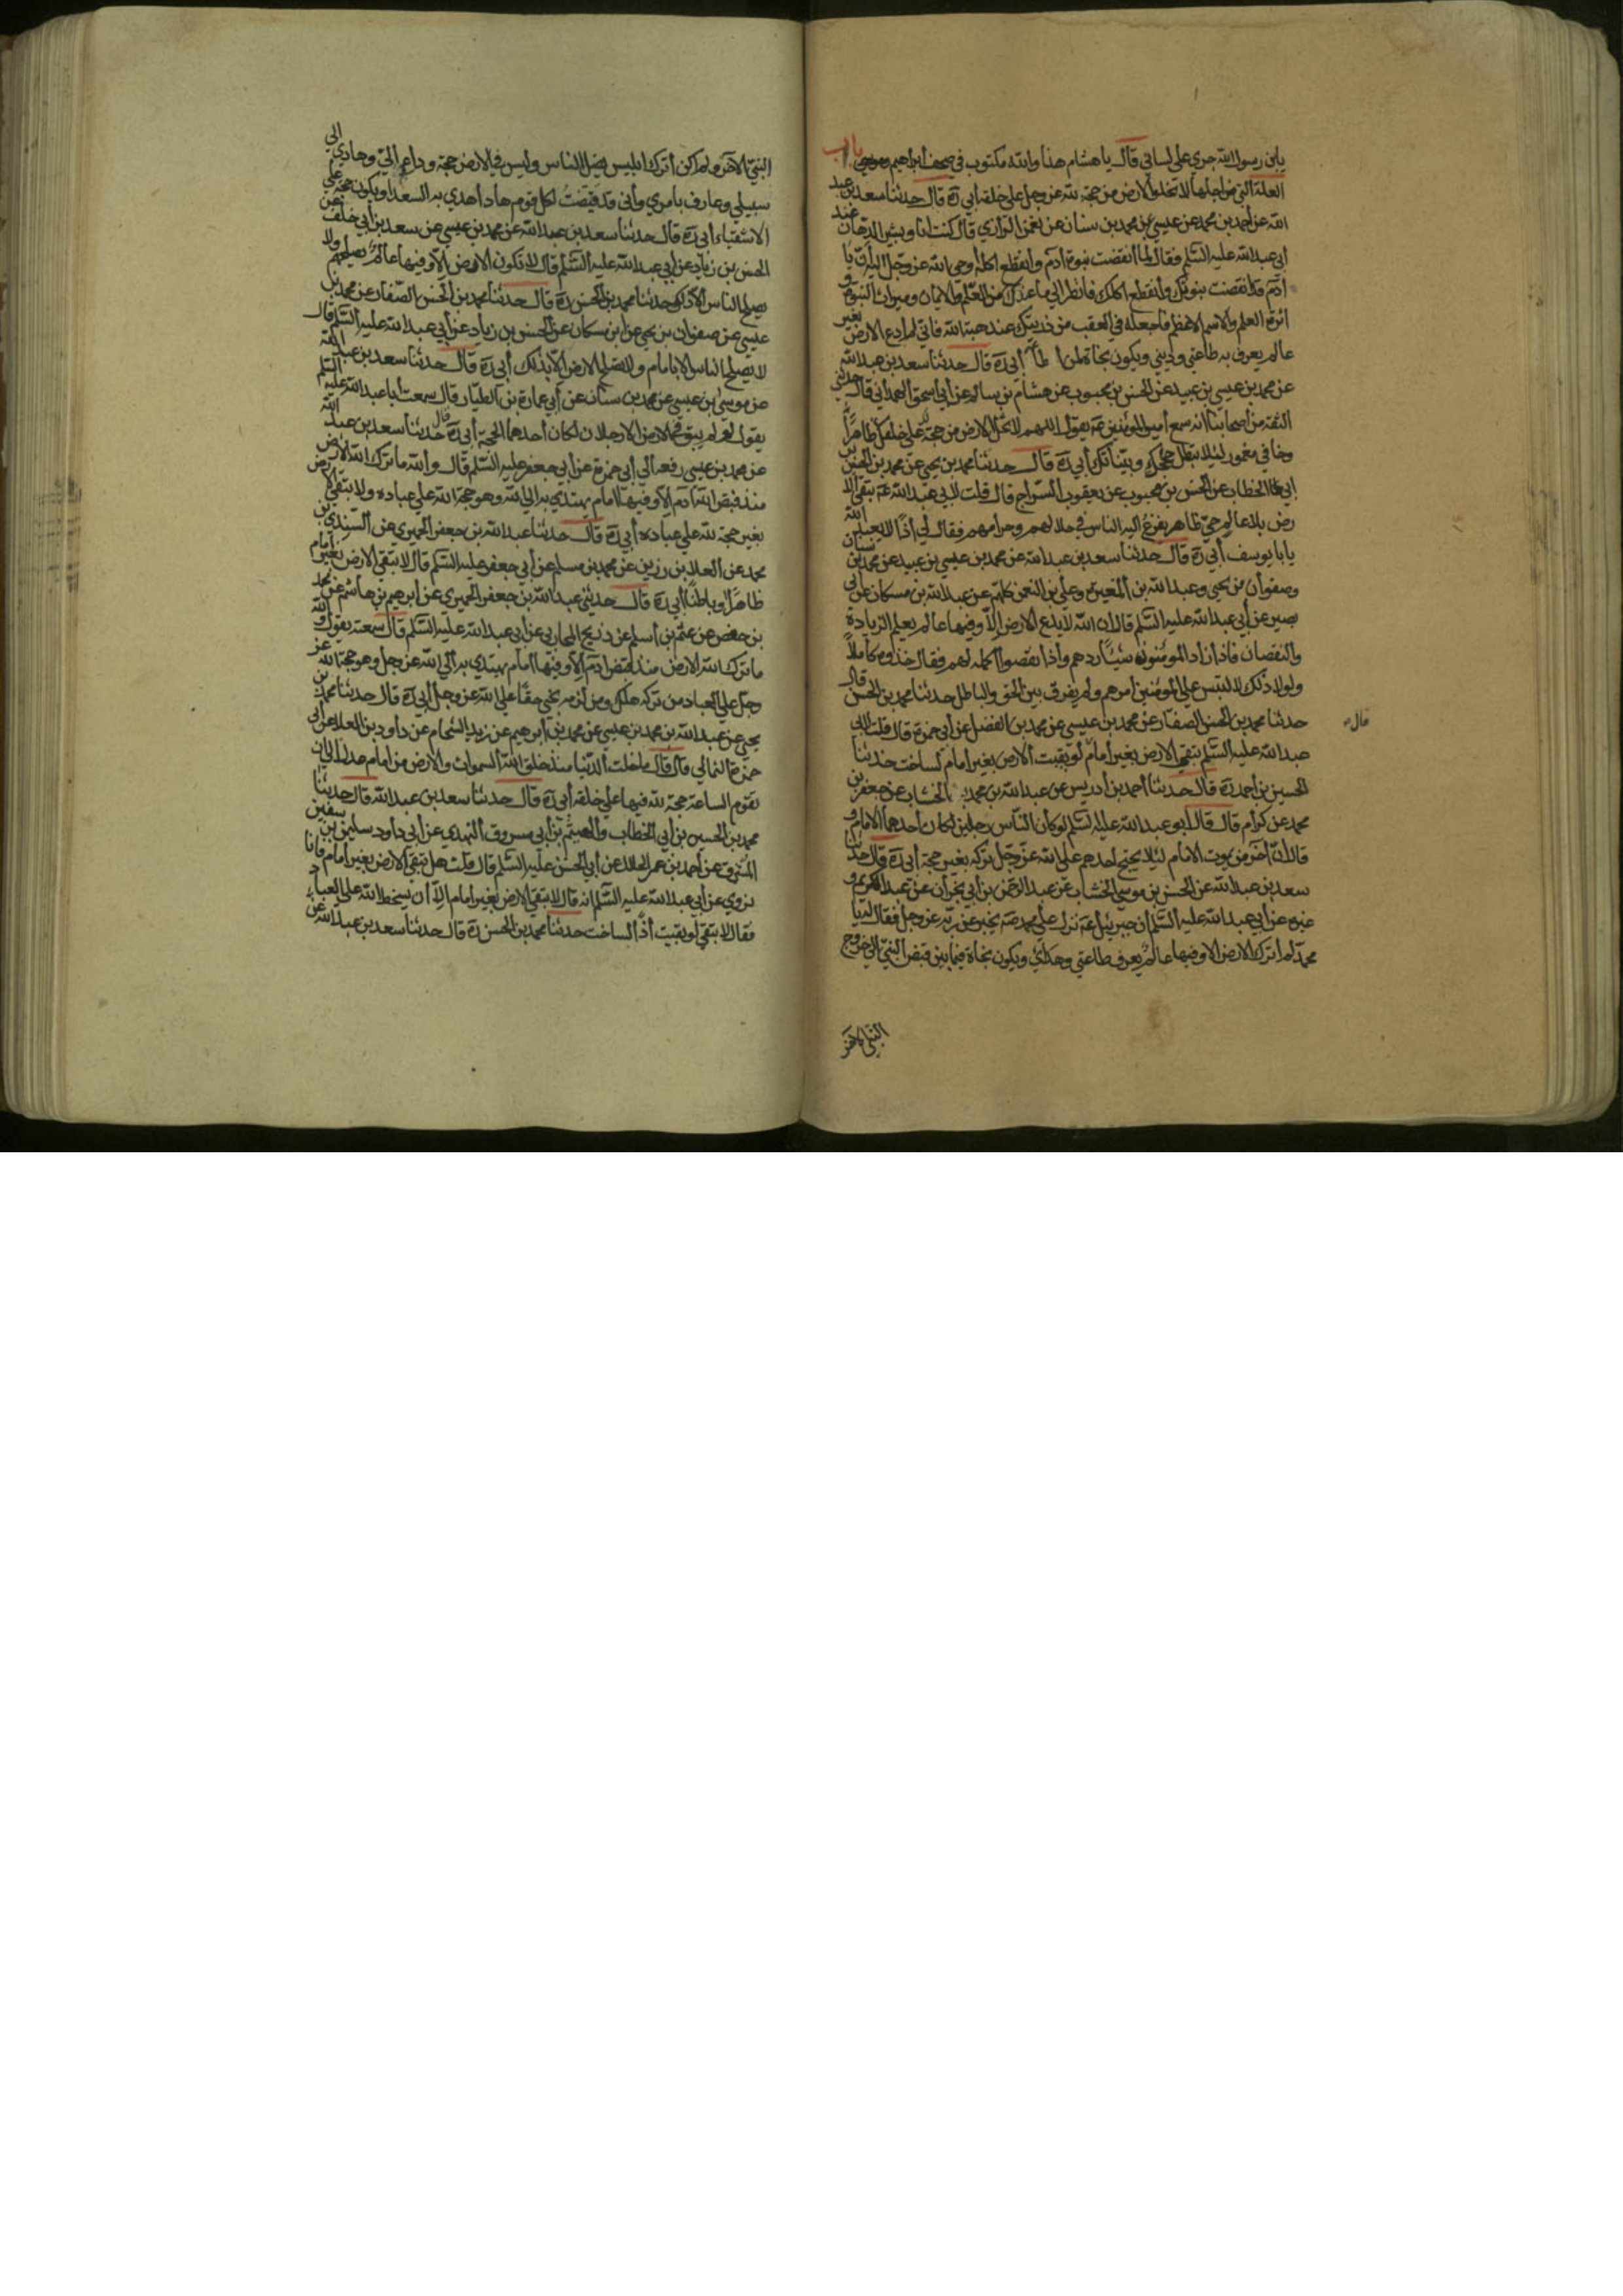 يابن رسول الله جري علي لساني قال يا هشام هذا والله مكتوب في صحف ابراهيم وموسي باب
العلة التي من اجلها لا تخلو الارض من حجة لله عز وجل علي خلقه أبي ره قال حدثنا سعد بن عبد
الله عن احمد بن محمد بن عيسي عن محمد بن سنان عن نعمن الرازي قال كنت انا وبشير الدهان عند
أبي عبد الله عليه السلم فقال لما انقضت نبوة آدم وانقطع اكله أوحي الله عز وجل اليه أن يا
آدم قد انقضت نبوتك وأنقطع اكلك فانظر الي ما عندك من العلم والايمان وميراث النبوة و
اثرة العلم والاسم الاعظم فاجعله في العقب من ذريتك عند هبة الله فاني لم ادع الارض بغير
عالم يعرف به طاعتي وديني ويكون نجاة لمن أبي ره قال حدثنا سعد بن عبد الله
عن محمد بن عيسي بن عبيد عن الحسن بن محبوب عن هشام بن سالم عن أبي اسحق الهمداني قال حدثني
الثقة من أصحابنا انه سمع أمير المؤمنين عه يقول اللهم لا تخل الارض من حجة لك علي خلقك ظاهراً
وخافي مغمور لئلا تبطل حججك وبيناتك أبي ره قال حدثنا محمد بن يحيي عن محمد بن الحسين بن
ابي الخطاب عن الحسن بن محبوب عن يعقوب السراج قال قلت لابي عبد الله عه تبقي الا
رض بلا عالم حي ظاهر يفزع اليه الناس في حلالهم وحرامهم فقال لي اذاً لا يعبد الله
يابا يوسف أبي ره قال حدثنا سعد بن عبد الله عن محمد بن عيسي بن عبيد عن محمد بن سنان
وصفوان بن يحيي وعبد الله بن المغيرة وعلي بن النعمن كلهم عن عبد الله بن مسكان عن أبي
بصير عن أبي عبد الله عليه السلم قال ان الله لا يدع الارض الا وفيها عالم يعلم الزيادة
والنقصان فاذا زاد المؤمنون شيئاً ردهم واذا نقصوا اكمله لهم فقال خذوه كاملاً
ولولا ذلك لالتبس علي المؤمنين أمرهم ولم يفرق بين الحق والباطل حدثنا محمد بن الحسن قال
حدثنا محمد بن الحسن الصفار عن محمد بن عيسي عن محمد بن الفضل عن أبي حمزة قال قلت لابي
قال
عبد الله عليه السلم تبقي الارض بغير امام قال لو بقيت الارض بغير امام لساخت حدثنا
الحسين بن احمد ره قال حدثنا أحمد بن أدريس عن عبد الله بن محمد الخشاب عن جعفر بن
محمد عن كرام قال قال أبو عبد الله عليه السلم لو كان الناس رجلين لكان أحدهما الامام و
قال أن آخر من يموت الامام لئلا يحتج احدهم علي الله عز وجل تركه بغير حجة أبي ره قال حدثنا
سعد بن عبد الله عن الحسن بن موسي الخشاب عن عبد الرحمن بن أبي نجران عن عبد الكريم و
غيره عن أبي عبد الله عليه السلم أن جبرئيل عه نزل علي محمد صه يخبر عن ربه عز وجل فقال له يا
محمد لم اترك الارض الا وفيها عالم يعرف طاعتي وهداي ويكون نجاة فيما بين قبض النبي الي خروج
النبي الاخر
النبي الآخر ولم اكن أترك ابليس يضل الناس وليس في الارض حجة وداع الي وهادي الي
سبيلي وعارف بأمري وأني قد قيضت لكل قوم هاد أهدي به السعدا ويكون حجة علي
الاشقياء أبي ره قال حدثنا سعد بن عبد الله عن محمد بن عيسي عن سعد بن أبي خلف عن
الحسن بن زياد عن أبي عبد الله عليه السلم قال لا تكون الارض الا وفيها عالم يصلحهم ولا
يصلح الناس الا ذلك حدثنا محمد بن الحسن ره قال حدثنا محمد بن الحسن الصفار عن محمد بن
عيسي عن صفوان بن يحيي عن ابن مسكان عن الحسن بن زياد عن أبي عبد الله عليه السلم قال
لا يصلح الناس الا بامام ولا تصلح الارض الا بذلك أبي ره قال حدثنا سعد بن عبد الله
عن موسي بن عيسي عن محمد بن سنان عن أبي عمارة بن الطيار قال سمعت أبا عبد الله عليه السلم
يقول لو لم يبق في الارض الا رجلان لكان أحدهما الحجة أبي ره قال حدثنا سعد بن عبد الله
عن محمد بن عيسي رفعه الي أبي حمزة عن أبي جعفر عليه السلم قال والله ما ترك الله الارض
منذ قبض الله آدم الا وفيها امام يهتدي به الي الله وهو حجة الله علي عباده ولا تبقي الارض
بغير حجة لله علي عباده أبي ره قال حدثنا عبد الله بن جعفر الحميري عن السندي بن
محمد عن العلا بن رزين عن محمد بن مسلم عن أبي جعفر عليه السلم قال لا تبقي الارض بغير امام
ظاهراً وباطناً أبي ره قال حدثني عبد الله بن جعفر الحميري عن ابرهيم بن هاشم عن محمد
بن حفص عن عثم بن أسلم عن ذريح المحاربي عن أبي عبد الله عليه السلم قال سمعته يقول والله
ما ترك الله الارض منذ قبض آدم الا وفيها امام يهتدي به الي الله عز وجل وهو حجة الله عز
وجل علي العباد من تركه هلك ومن لزمه نجي حقاً علي الله عز وجل أبي ره قال حدثنا محمد بن
يحيي عن عبد الله بن محمد بن عيسي عن محمد بن ابرهيم عن زيد الشحام عن داود بن العلا عن أبي
حمزة الثمالي قال قال ما خلت الدنيا منذ خلق الله السموات والارض من امام عدل الي أن
تقوم الساعة حجة لله فيها علي خلقه أبي ره قال حدثنا سعد بن عبد الله قال حدثنا
محمد بن الحسين بن أبي الخطاب والهيثم بن أبي مسروق النهدي عن أبي داود سليمن بن سفين
المسترق عن احمد بن عمر الحلال عن أبي الحسن عليه السلم قال قلت هل تبقي الارض بغير امام فانا
نروي عن أبي عبد الله عليه السلم انه قال لا تبقي الارض بغير امام الا أن يسخط الله علي العباد
فقال لا تبقي لو بقيت أذاً لساخت حدثنا محمد بن الحسن ره قال حدثنا سعد بن عبد الله عن